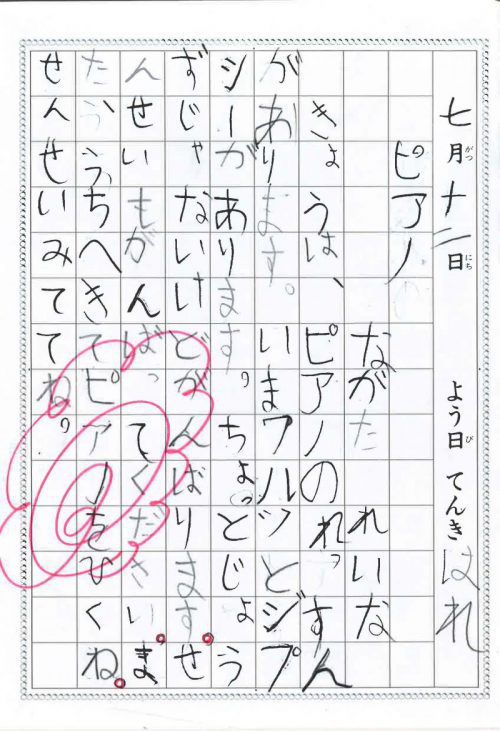 七月十二日 よう日 てんき はれ
がつ にち び
ピアノ
ながた れいな
きょうは、ピアノのれっすん
があります。いまワルツとジプ
シーがあります。ちょっとじょう
ずじゃないけどがんばります。せ
んせいもがんばってください。ま
たううちへきてピアノをひくね。
せんせいみててね。